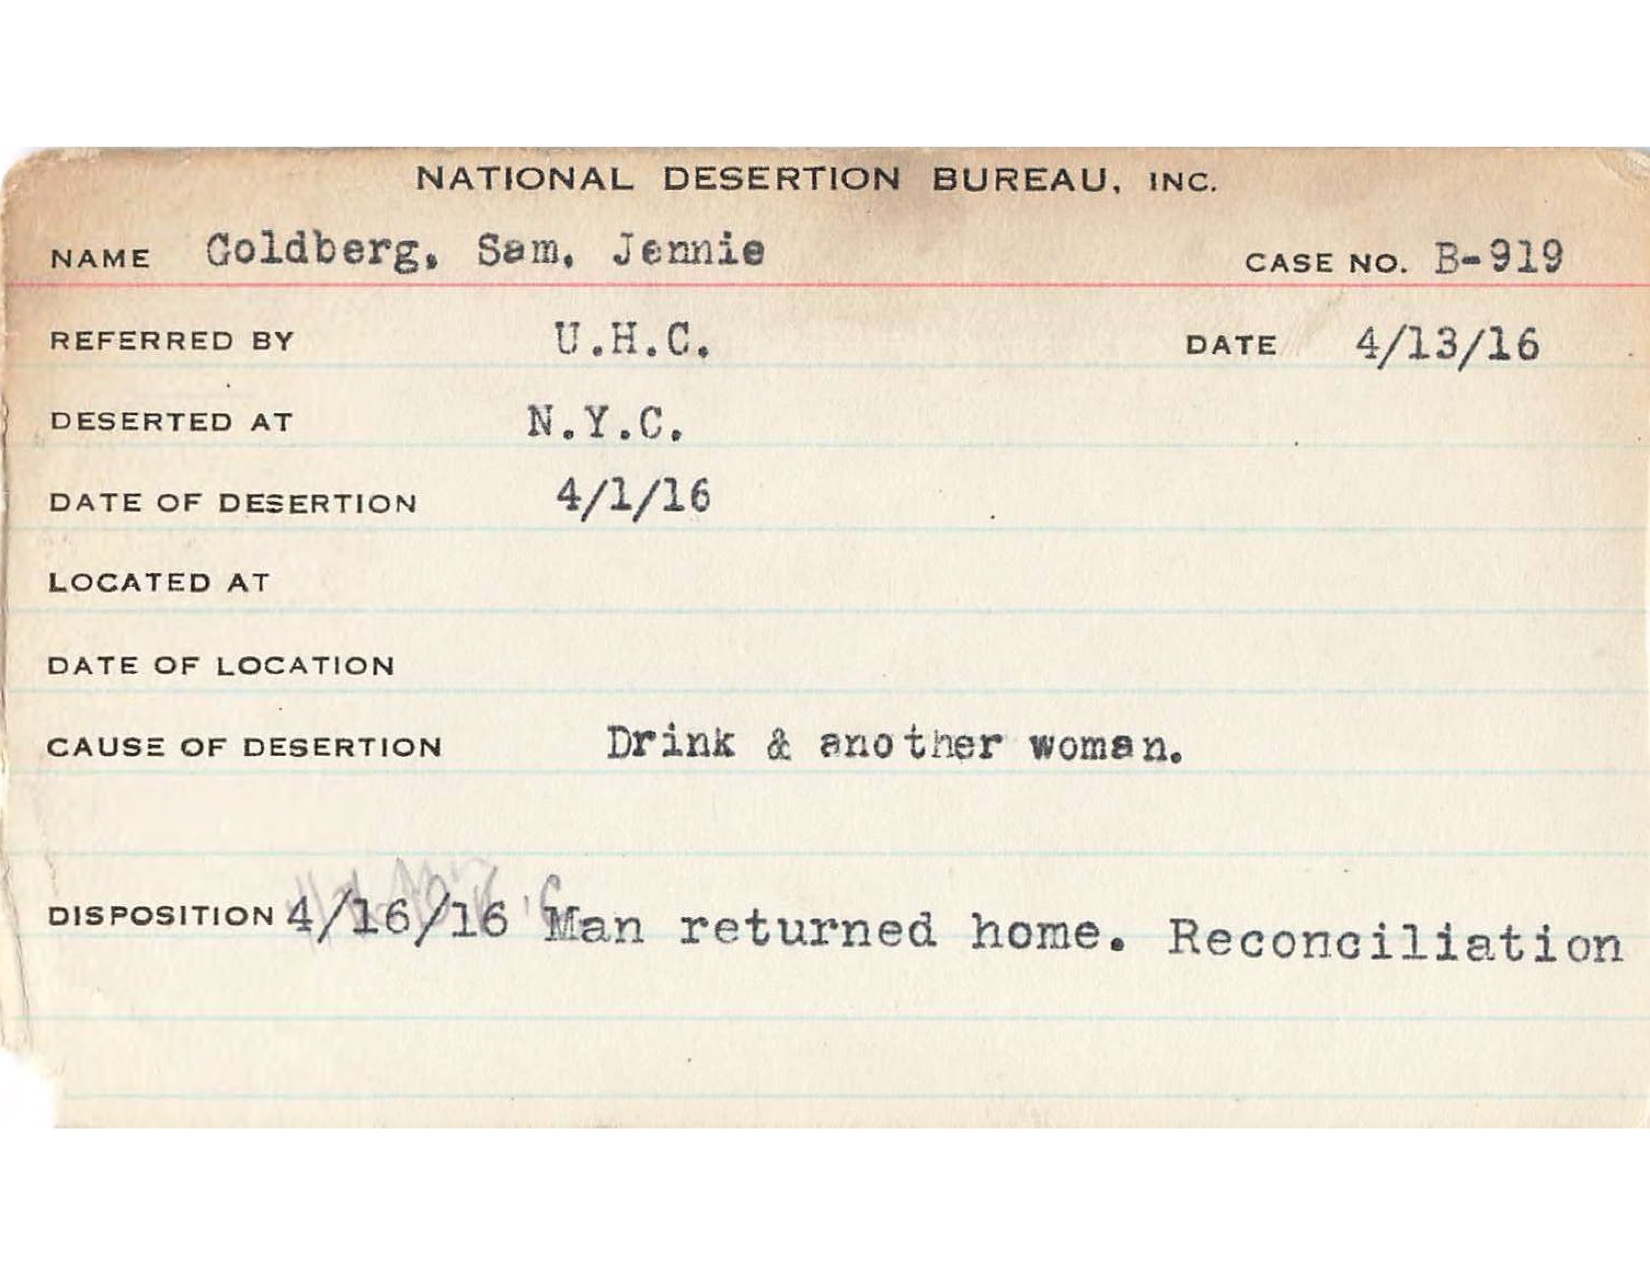 NATIONAL DESERTION BUREAU, INC.
NAME Goldberg, Sam, Jennie CASE NO. B-919
REFERRED BY U.H.C. DATE 4/13/16
DESERTED AT N.Y.C.
DATE OF DESERTION 4/1/16
LOCATED AT
DATE OF LOCATION
CAUSE OF DESERTION Drink & another woman.
DISPOSITION 4/16/16 Man returned home. Reconciliation